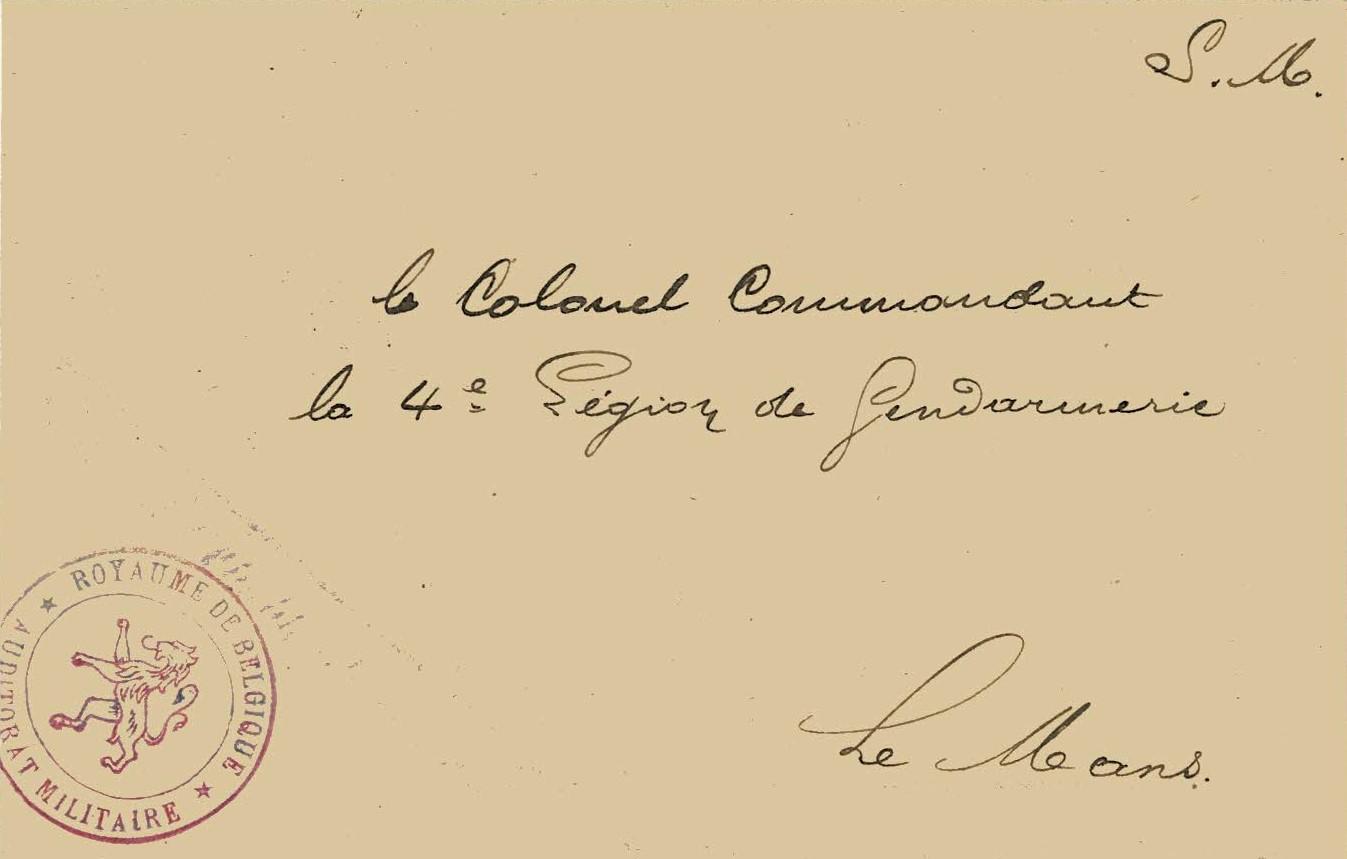 S. M.
le Colonel Commandant
la 4e Légion de Gendarmerie
Le Mans.
★ ROYAUME DE BELGIQUE ★
AUDITORAT MILITAIRE